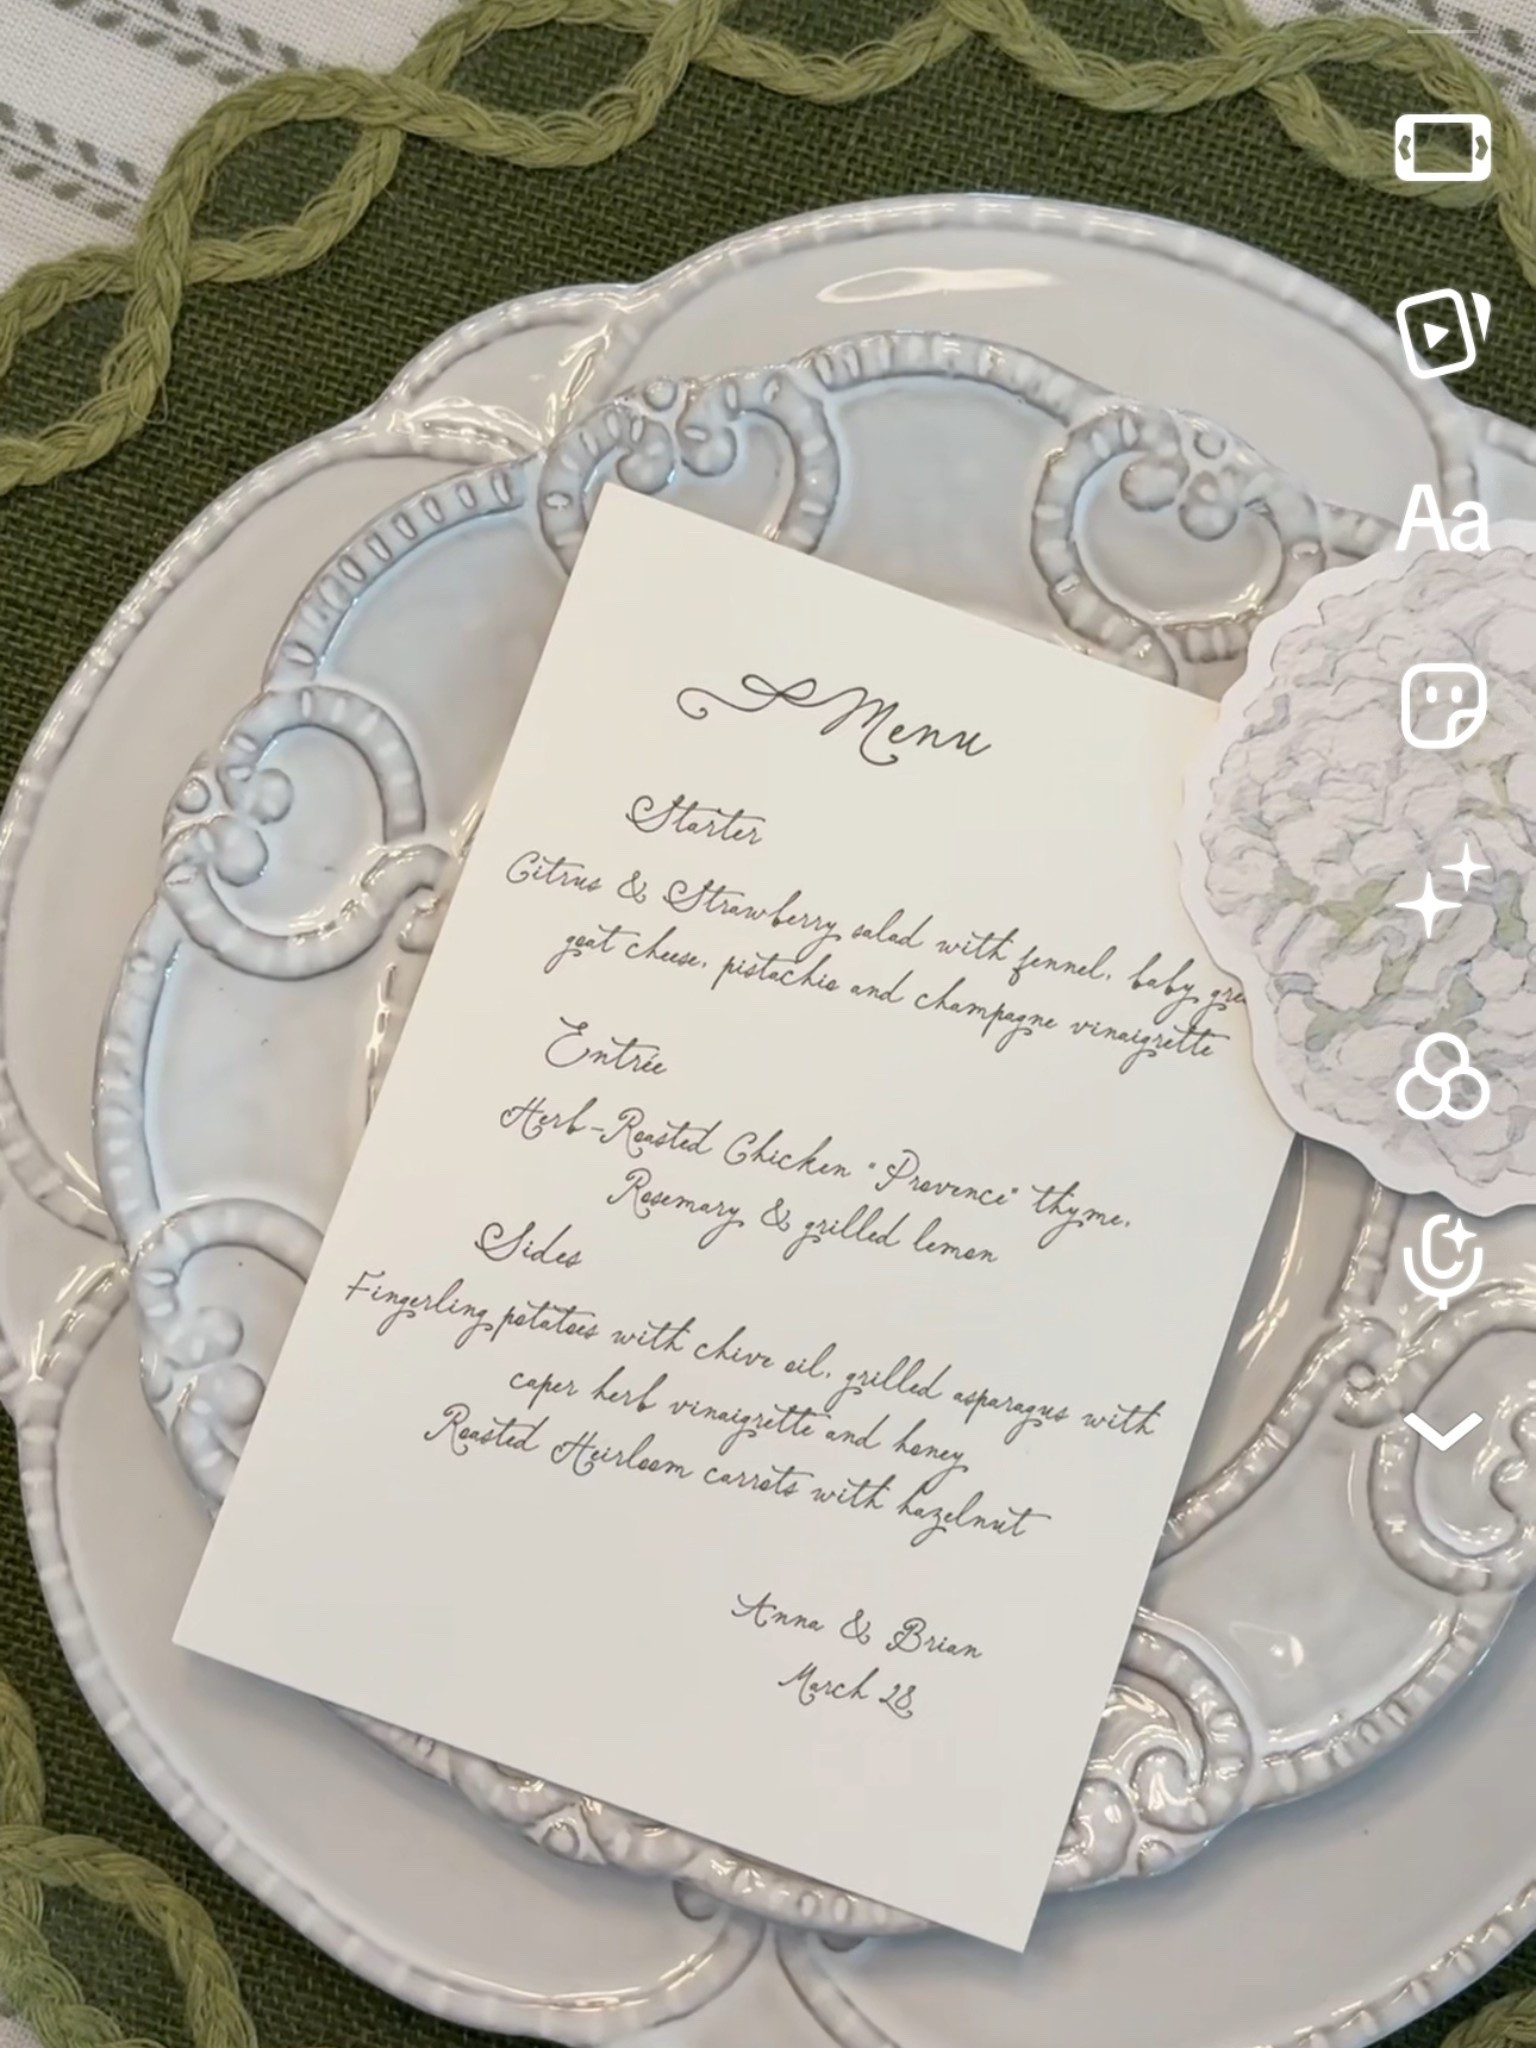 Menu
Starter
Citrus & Strawberry salad with fennel, baby
goat cheese, pistachio and champagne vinaigrette
Entrée
Herb-Roasted Chicken "Provence" thyme,
Rosemary & grilled lemon
Sides
Fingerling potatoes with chive oil, grilled asparagus with
caper herb vinaigrette and honey
Roasted Heirloom carrots with hazelnut
Anna & Brian
March 28
Aa